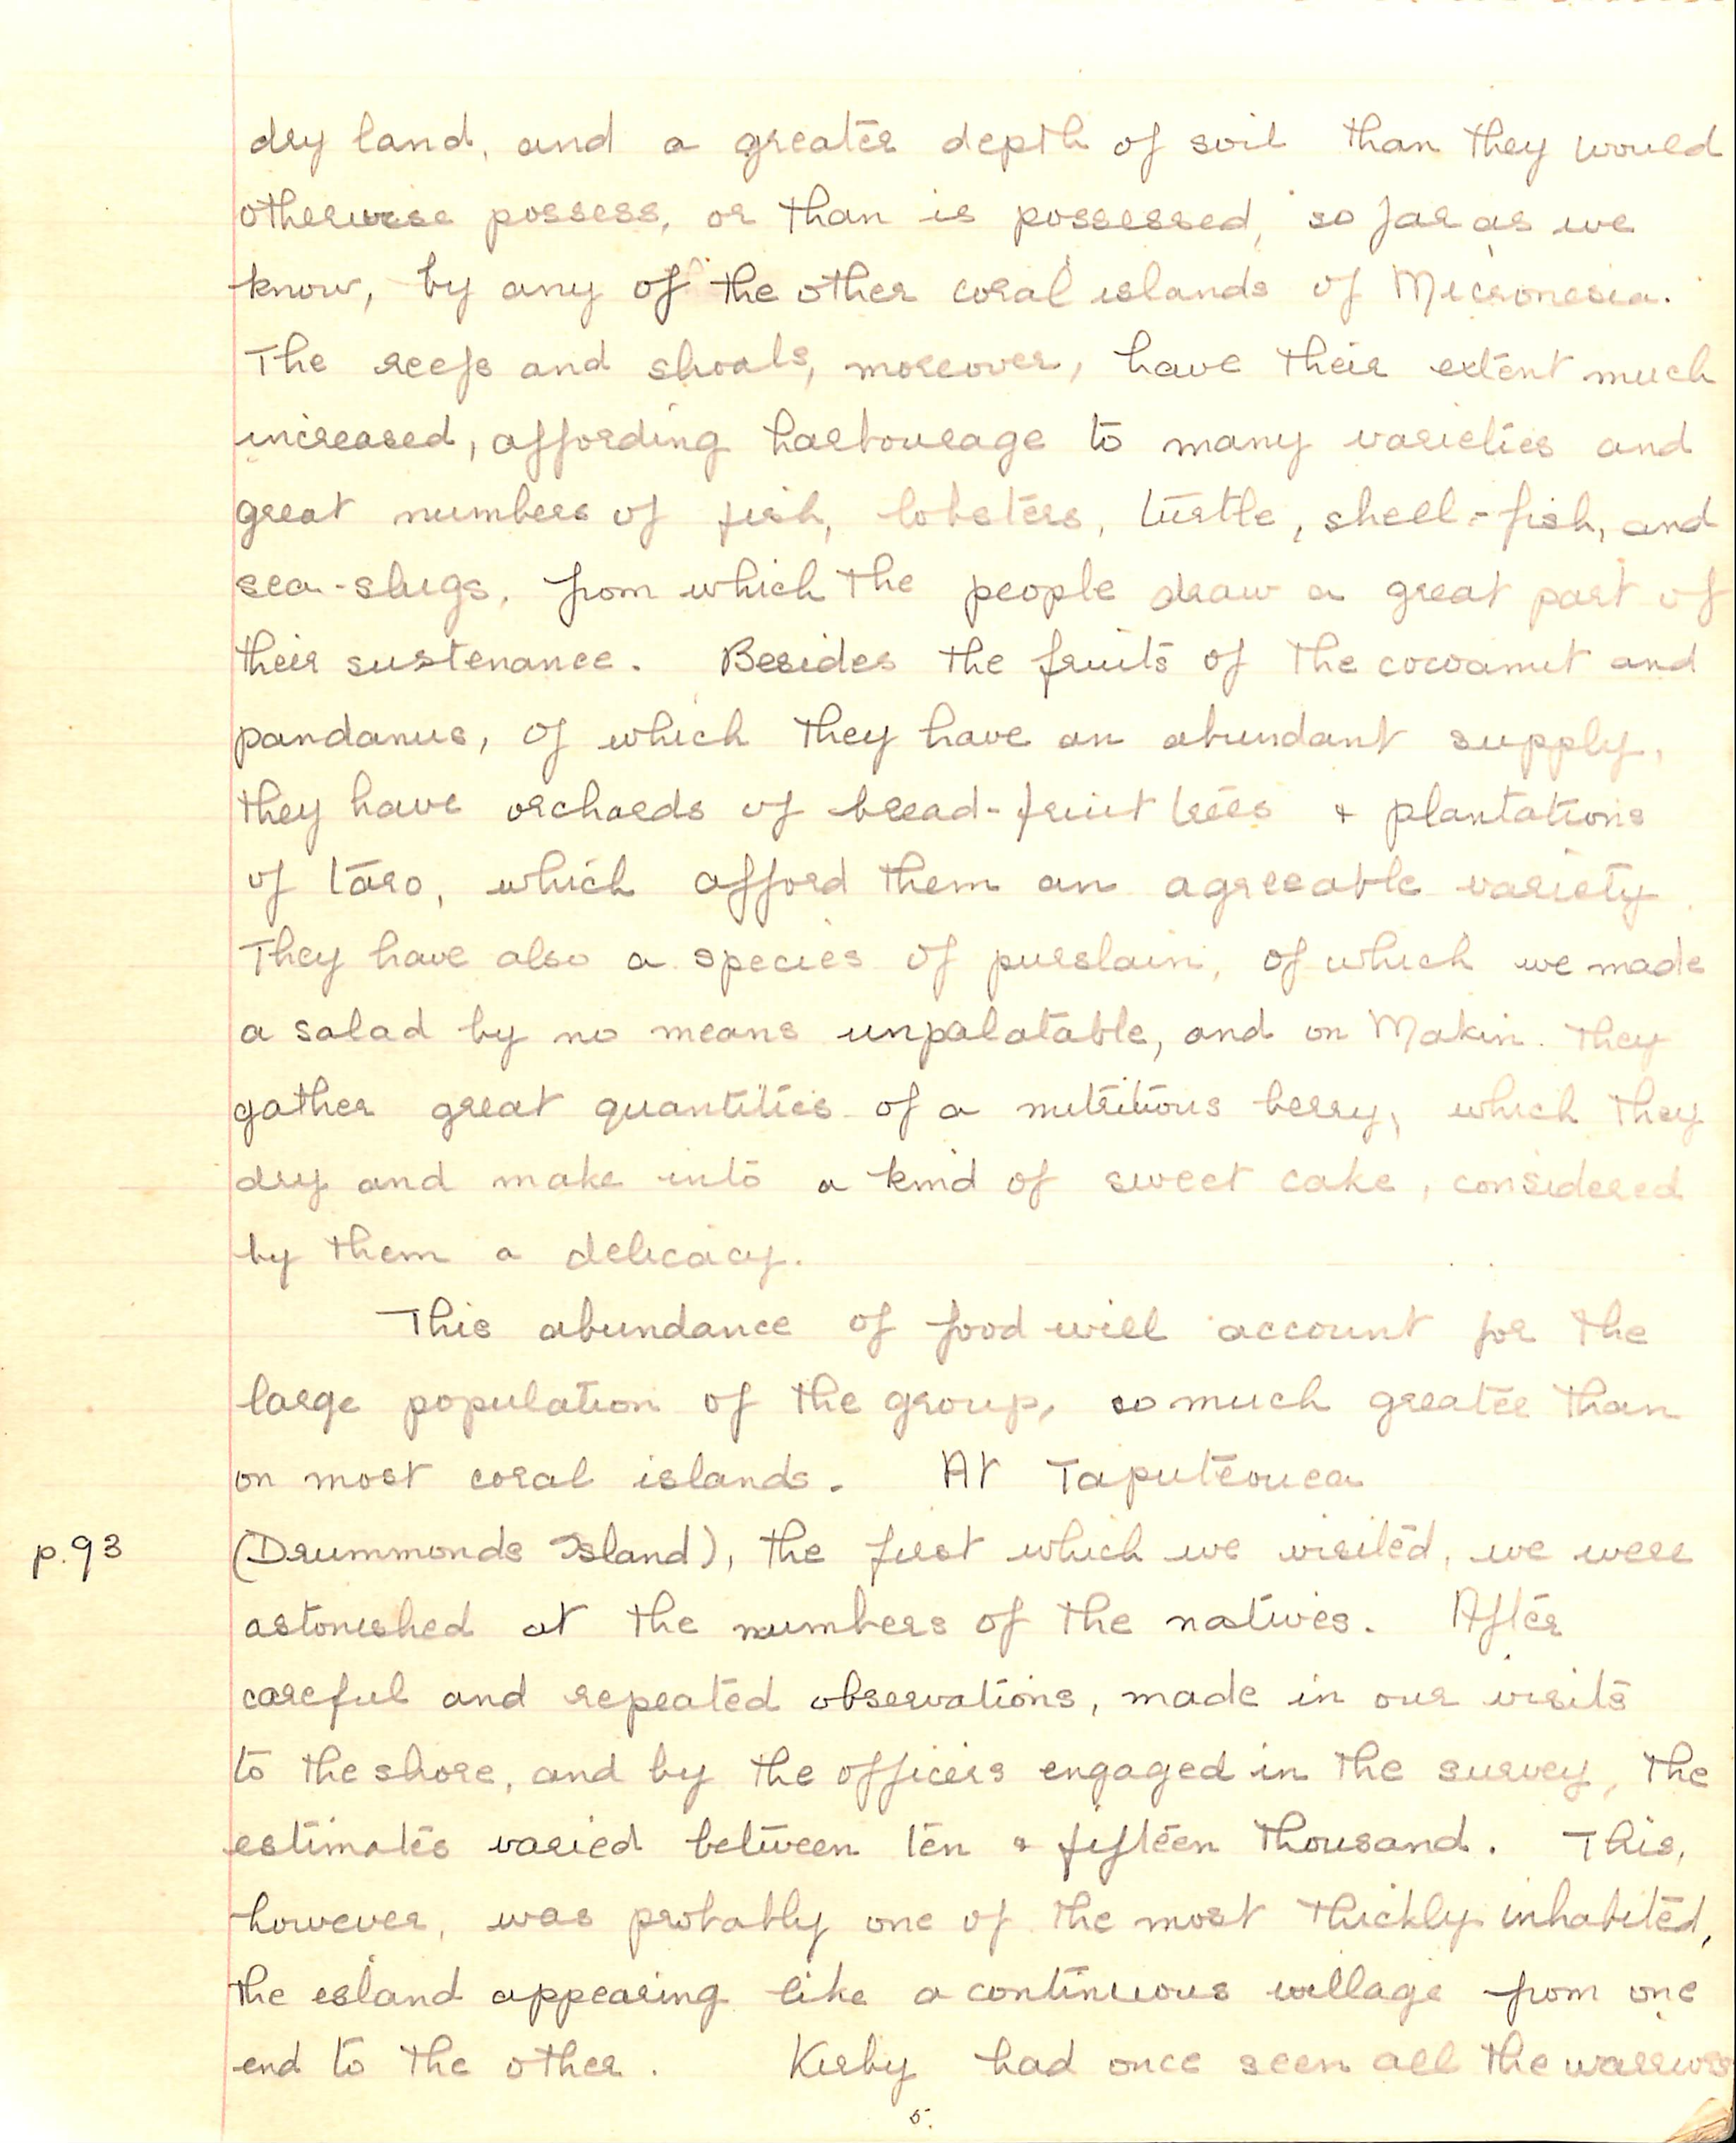 dry land, and a greater depth of soil than they would
otherwise possess, or than is possessed, so far as we
know, by any of the other coral islands of Micronesia.
The reefs and shoals, moreover, have their extent much
increased, affording harbourage to many varieties and
great numbers of fish, lobsters, turtle, shell-fish, and
sea-slugs, from which the people draw a great part of
their sustenance. Besides the fruits of the cocoanut and
pandanus, of which they have an abundant supply,
they have orchards of bread-fruit trees & plantations
of taro, which afford them an agreeable variety.
They have also a species of purslain, of which we made
a salad by no means unpalatable, and on Makin they
gather great quantities of a nutritious berry, which they
dry and make into a kind of sweet cake, considered
by them a delicacy.
This abundance of food will account for the
large population of the group, so much greater than
on most coral islands. At Taputeouea
p.93 (Drummonds Island), the first which we visited, we were
astonished at the numbers of the natives. After
careful and repeated observations, made in our visits
to the shore, and by the officers engaged in the survey, the
estimates varied between ten & fifteen thousand. This,
however, was probably one of the most thickly inhabited,
the island appearing like a continuous village from one
end to the other. Kirby had once seen all the warriors
5.